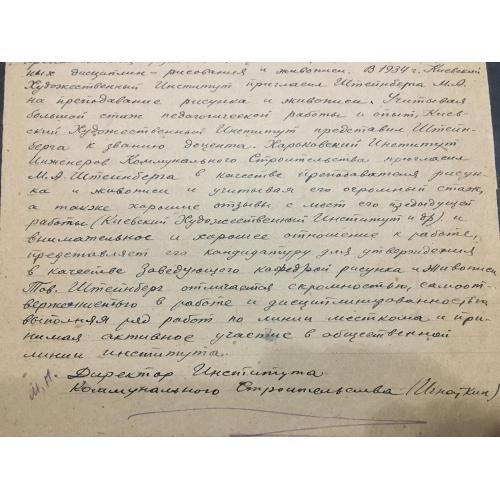 ных дисциплин - рисования и живописи. В 1934 г. Киевский
Художественный Институт пригласил Штейнберга М.А.
на преподавание рисунка и живописи. Учитывая
большой стаж педагогической работы и опыт, Киев-
ский Художественный Институт представил Штейн-
берга к званию доцента. Харьковский Институт
Инженеров Коммунального Строительства пригласил
М.А. Штейнберга в качестве преподавателя рисун-
ка и живописи и учитывая его огромный стаж,
а также хорошие отзывы с мест его предыдущей
работы (Киевский Художественный Институт и др.) и
внимательное и хорошее отношение к работе,
представляет его кандидатуру для утверждения
в качестве заведующего кафедрой рисунка и живописи
Тов. Штейнберг отличается скромностью, самоот-
верженностью в работе и дисциплинированностью,
выполняя ряд работ по линии месткома и при-
нимая активное участие в общественной
линии института.
М.П. Директор Института
Коммунального Строительства (Игнаткин)